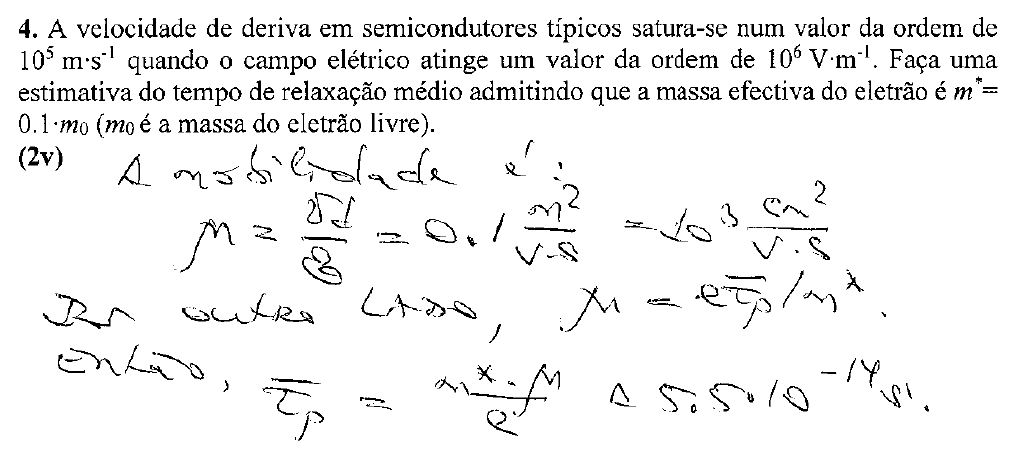 4. A velocidade de deriva em semicondutores típicos satura-se num valor da ordem de
10⁵ m·s⁻¹ quando o campo elétrico atinge um valor da ordem de 10⁶ V·m⁻¹. Faça uma
estimativa do tempo de relaxação médio admitindo que a massa efectiva do eletrão é m*=
0.1·m₀ (m₀ é a massa do eletrão livre).
(2v)
A mobilidade é:
μ = vd/E = 0.1 m²/V·s = 10³ cm²/V·s
Por outro lado, μ = eτ̄p/m*.
Então, τ̄p = m*·μ/e ≈ 5.5·10⁻¹⁴ s.